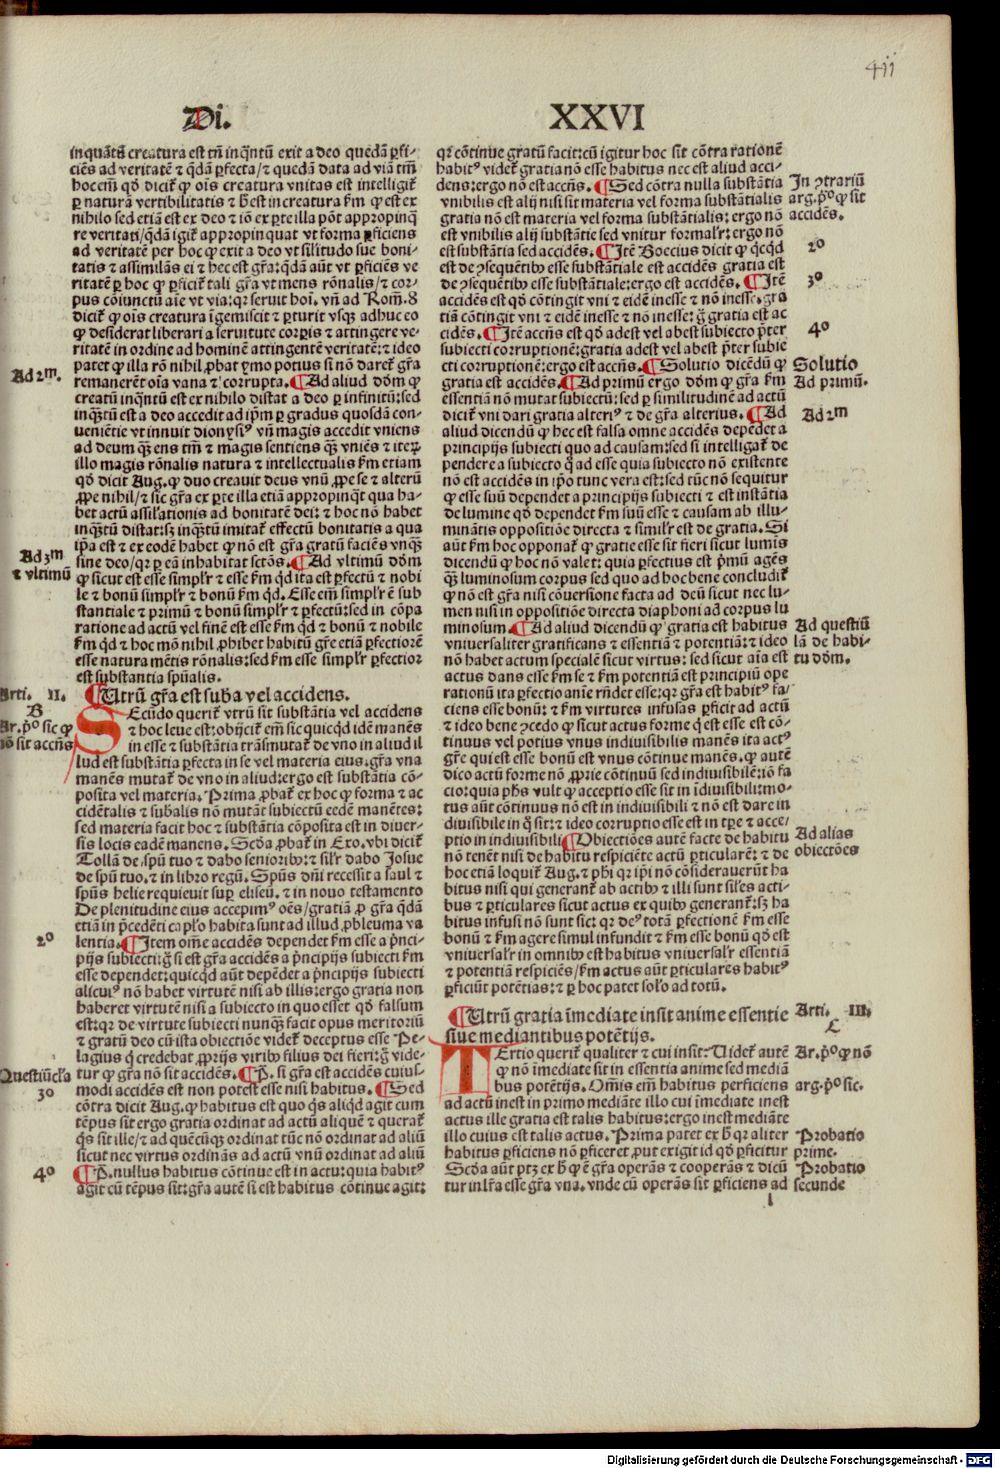 411
Di. XXVI
inquãtũ creatura est tñ inq̃ntũ exit a deo quedã ꝑfi-
ciẽs ad veritatẽ ⁊ q̃dã ꝑfecta/⁊ quedã data ad viã tm̃
hoc em̃ qđ dicit̃ ꝙ oĩs creatura vnitas est intelligit̃
ꝑ naturã vertibilitatis ⁊ ħ est in creatura ẜm ꝙ est ex
nihilo sed etiã est ex deo ⁊ iõ ex ꝑte illa põt appropinq̃
re veritati/q̃dã igit̃ appropinquat vt forma ꝑficiens
ad veritatẽ per hoc ꝙ exit a deo vt sil'itudo sue boni-
tatis ⁊ assimilãs ei ⁊ hec est gr̃a: q̃dã aũt vt ꝑficiẽs ve
ritatẽ ꝑ hoc ꝙ ꝑficit̃ tali gr̃a vt mens rõnalis/⁊ cor-
pus cõiunctũ aĩe vt via: qr seruit hoĩ. vñ ad Rom̃. 8
dicit̃ ꝙ oĩs creatura ĩgemiscit ⁊ ꝑturit vsq̃ adhuc eo
ꝙ desiderat liberari a seruitute corꝑis ⁊ attingere ve-
ritatẽ in ordine ad hominẽ attingentẽ veritatẽ: ⁊ ideo
patet ꝙ illa rõ nihil ꝓbat ymo potius si nõ daret̃ gr̃a
remanerẽt oĩa vana ⁊ corrupta. ¶Ad aliud dõm ꝙ
creatũ inq̃ntũ est ex nihilo distat a deo ꝑ infinitũ: sed
inq̃ʒtũ est a deo accedit ad ip̃m ꝑ gradus quosdã con-
uenietie vt innuit dionysi⁹ vñ magis accedit vniens
ad deum q̃ʒ ens tm̃ ⁊ magis sentiens q̃ʒ vniẽs ⁊ iteꝝ
illo magis rõnalis natura ⁊ intellectualis ẜm etiam
qđ dicit Aug. ꝙ duo creauit deus vnũ ꝓpe se ⁊ alterũ
ꝓpe nihil/⁊ sic gr̃a ex ꝑte illa etiã appropinq̃t qua ha-
bet actũ assil'ationis ad bonitatẽ dei: ⁊ hoc nõ habet
inq̃ʒtũ distat: sʒ inq̃ʒtum imitat̃ effectũ bonitatis a qua
ip̃a est ⁊ ex eodẽ habet ꝙ nõ est gr̃a gratũ faciẽs vnq̃ʒ
sine deo/qr ꝑ eã inhabitat sctõs. ¶Ad vltimũ dõm
ꝙ sicut est esse simplr̃ ⁊ esse ẜm q̃d ita est ꝑfectũ ⁊ nobi
le ⁊ bonũ simplr̃ ⁊ bonũ ẜm q̃d. Esse em̃ simplr̃ ẽ sub
stantiale ⁊ primũ ⁊ bonũ simplr̃ ⁊ ꝑfectũ: sed in cõpa
ratione ad actũ vel finẽ est esse ẜm q̃d ⁊ bonũ ⁊ nobile
ẜm q̃d ⁊ hoc mõ nihil ꝓhibet habitũ gr̃e etiã ꝑfectiorẽ
esse natura mẽtis rõnalis: sed ẜm esse simplr̃ ꝑfectior
est substantia spũalis.
¶Utrũ gr̃a est sub̃a vel accidens.
SEcũdo querit̃ vtrũ sit substãtia vel accidens
⁊ hoc leue est: obijcit̃ em̃ sic quicq̃d idẽ manẽs
in esse ⁊ substãtia trãsmutat̃ de vno in aliud il
lud est substãtia ꝑfecta in se vel materia eius. gr̃a vna
manẽs mutat̃ de vno in aliud: ergo est substãtia cõ-
posita vel materia. Prima ꝓbat̃ ex hoc ꝙ forma ⁊ ac
cidẽtalis ⁊ sub̃alis nõ mutãt subiectũ eedẽ manẽtes:
sed materia facit hoc ⁊ substãtia cõposita est in diuer-
sis locis eadẽ manens. Scđa ꝓbat̃ in Exo. vbi dicit̃
Tollã de spũ tuo ⁊ dabo seniorib⁹: ⁊ sil'r dabo Josue
de spũ tuo. ⁊ in libro regũ. Spũs dñi recessit a saul ⁊
spũs helie requieuit suꝑ eliseũ. ⁊ in nouo testamento
De plenitudine eius accepim⁹ oẽs/gratiã ꝓ gr̃a q̃dã
etiã in p̃cedẽti cap̃lo habita sunt ad illud ꝓbleuma va
lentia. ¶Item om̃e accidẽs dependet ẜm esse a p̃nci-
pijs subiecti: g̃ si est gr̃a accidẽs a p̃ncipijs subiecti ẜm
esse dependet: quicq̃d aũt depẽdet a p̃ncipijs subiecti
alicui⁹ nõ habet virtutẽ nisi ab illis: ergo gratia non
haberet virtutẽ nisi a subiecto in quo esset qđ falsum
est: qr de virtute subiecti nunq̃ʒ facit opus meritoriũ
⁊ gratũ deo cũ ista obiectiõe videt̃ deceptus esse Pe-
lagius q̃ credebat ꝓprijs virib⁹ filius dei fieri: g̃ vide-
tur ꝙ gr̃a nõ sit accidẽs. ¶P̃. si gr̃a est accidẽs cuius-
modi accidẽs est non potest esse nisi habitus. ¶Sed
cõtra dicit Aug. ꝙ habitus est quo q̃s aliq̃d agit cum
tẽpus sit ergo gratia ordinat ad actũ aliquẽ ⁊ querat̃
q̃s sit ille/⁊ ad quẽcũq̃ ordinat tũc nõ ordinat ad aliũ
sicut nec virtus ordinãs ad actũ vnũ ordinat ad aliũ
¶P̃. nullus habitus cõtinue est in actu: quia habit⁹
agit cũ tẽpus sit: gr̃a autẽ si est habitus cõtinue agit:
Ad 2m.
Ad 3m
⁊ vltimũ
Arti. II.
B
Ar. p̃º sic ꝙ
nõ sit accñs
2º
Questiũcl'a
3º
4º
qr cõtinue gratũ facit: cũ igitur hoc sit cõtra rationẽ
habit⁹ videt̃ gratia nõ esse habitus nec est aliud acci-
dens: ergo nõ est accñs. ¶Sed cõtra nulla substãtia
vnibilis est alij nisi sit materia vel forma substãtialis
gratia nõ est materia vel forma substãtialis: ergo nõ
est vnibilis alij substãtie sed vnitur formal'r: ergo nõ
est substãtia sed accidẽs. ¶Itẽ Boecius dicit ꝙ q̃cq̃d
est de ꝯsequẽtib⁹ esse substãtiale est accidẽs gratia est
de ꝯsequẽtib⁹ esse substãtiale: ergo est accidẽs. ¶Itẽ
accidẽs est qđ cõtingit vni ⁊ eidẽ inesse ⁊ nõ inesse. gra
tiã cõtingit vni ⁊ eidẽ inesse ⁊ nõ inesse: g̃ gratia est ac
cidẽs. ¶Itẽ accñs est qđ adest vel abest subiecto p̃ter
subiecti corruptionẽ: gratia adest vel abest p̃ter subie
cti corruptionẽ: ergo est accñs. ¶Solutio dicẽdũ ꝙ
gratia est accidẽs. ¶Ad primũ ergo dõm ꝙ gr̃a ẜm
essentiã nõ mutat subiectũ: sed ꝑ similitudinẽ ad actũ
dicit̃ vni dari gratia alteri⁹ ⁊ de gr̃a alterius. ¶Ad
aliud dicendũ ꝙ hec est falsa omne accidẽs depẽdet a
principijs subiecti quo ad causam: sed si intelligat̃ de
pendere a subiecto q̃ ad esse quia subiecto nõ existente
nõ est accidẽs in ip̃o tunc vera est: sed tũc nõ sequitur
ꝙ esse suũ dependet a principijs subiecti ⁊ est instãtia
de lumine qđ dependet ẜm suũ esse ⁊ causam ab illu-
minãtis oppositiõe directa ⁊ simil'r est de gratia. Si
aũt ẜm hoc opponat̃ ꝙ gratie esse sit fieri sicut lumĩs
dicendũ ꝙ hoc nõ valet: quia ꝑfectius est p̃mũ agẽs
q̃ʒ luminosum corpus sed quo ad hoc bene concludit̃
ꝙ nõ est gr̃a nisi cõuersione facta ad deũ sicut nec lu-
men nisi in oppositiõe directa diaphoni ad corpus lu
minosum. ¶Ad aliud dicendũ ꝙ gratia est habitus
vniuersaliter gratificans ⁊ essentiã ⁊ potentiã: ⁊ ideo
nõ habet actum specialẽ sicut virtus: sed sicut aĩa est
actus dans esse ẜm se ⁊ ẜm potentiã est principiũ ope
rationũ ita ꝑfectio anĩe rñdet esse: qr gr̃a est habit⁹ fa-
ciens esse bonũ: ⁊ ẜm virtutes infusas ꝑficit ad actũ
⁊ ideo bene ꝯcedo ꝙ sicut actus forme q̃ est esse est cõ-
tinuus vel potius vnus indiuisibilis manẽs ita act⁹
gr̃e qui est esse bonũ est vnus cõtinue manẽs. ꝙ autẽ
dico actũ forme nõ ꝓprie cõtinuũ sed indiuisibilẽ: iõ fa
cio: quia ph̃s vult ꝙ acceptio esse sit in ĩdiuisibili: mo-
tus aũt continuus nõ est in indiuisibili ⁊ nõ est dare in
diuisibile in q̃ sit: ⁊ ideo corruptio esse est in tp̃e ⁊ acce-
ptio in indiuisibili ¶Obiectiões autẽ facte de habitu
nõ tenẽt nisi de habitu respiciẽte actũ ꝑticularẽ: ⁊ de
hoc etiã loquit̃ Aug. ⁊ ph̃i qr ip̃i nõ cõsiderauerũt ha
bitus nisi qui generant̃ ab actib⁹ ⁊ illi sunt sil'es acti-
bus ⁊ ꝑticulares sicut actus ex quib⁹ generant̃: sʒ ha
bitus infusi nõ sunt sic: qr de⁹ totã ꝑfectionẽ ẜm esse
bonũ ⁊ ẜm agere simul infundit ⁊ ẜm esse bonũ qđ est
vniuersal'r in omnib⁹ est habitus vniuersal'r essentiã
⁊ potentiã respiciẽs/ẜm actus aũt ꝑticulares habit⁹
ꝑficiũt potẽtias: ⁊ ꝑ hoc patet sol'o ad totũ.
¶Utrũ gratia ĩmediate insit anime essentie
siue mediantibus potẽtijs.
TErtio querit̃ qualiter ⁊ cui insit: Uidet̃ autẽ
ꝙ nõ ĩmediate sit in essentia anime sed mediã
bus potẽtijs. Om̃is em̃ habitus perficiens
ad actũ inest in primo mediãte illo cui ĩmediate inest
actus ille gratia est talis habitus: ergo inest mediãte
illo cuius est talis actus. Prima patet ex ħ qr aliter
habitus ꝑficiens nõ ꝑficeret ꝓut exigit id qđ ꝑficitur
Scđa aũt ptʒ ex ħ ꝙ ẽ gr̃a operãs ⁊ cooperãs ⁊ dicũ
tur in lr̃a esse gr̃a vna. vnde cũ operãs sit ꝑficiens ad
In ꝯtrariũ
arg. p̃º ꝙ sit
accidẽs.
2º
3º
4º
Solutio
Ad primũ.
Ad 2m
Ad questiũ
lã de habi-
tu dõm.
Ad alias
obiectões
Arti. III.
C
Ar. p̃º ꝙ nõ
arg. p̃º sic.
Probatio
prime.
Probatio
secunde
l
Digitalisierung gefördert durch die Deutsche Forschungsgemeinschaft - DFG